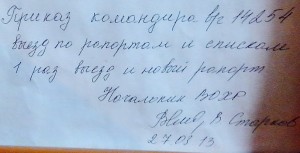 Приказ командира в/с 14254
выезд по рапортам и спискам
1 раз выезд и новый рапорт
Начальник ВОХР
В. Старков
27.08 13